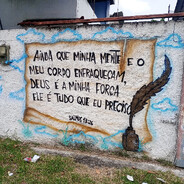 AINDA QUE MINHA MENTE E O
MEU CORPO ENFRAQUEÇAM,
DEUS É A MINHA FORÇA
ELE É TUDO QUE EU PRECISO